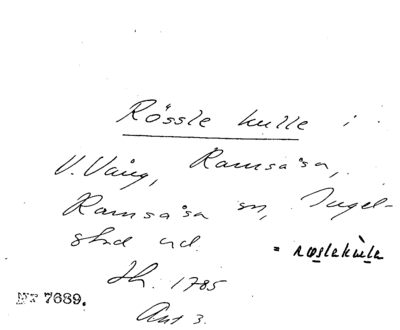 Rössle kulle i
V. Vång, Ramsåsa,
Ramsåsa sn, Ingel-
stad hd.
= rœslekùle
Sk. 1785
№ 7689.
Ant 3.